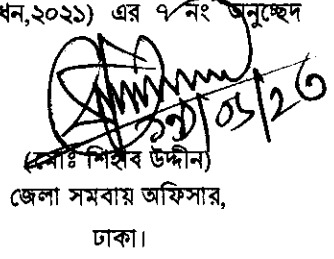 ধন,২০২১) এর ৭ নং অনুচ্ছেদ
(মোঃ শিহাব উদ্দীন)
জেলা সমবায় অফিসার,
ঢাকা।